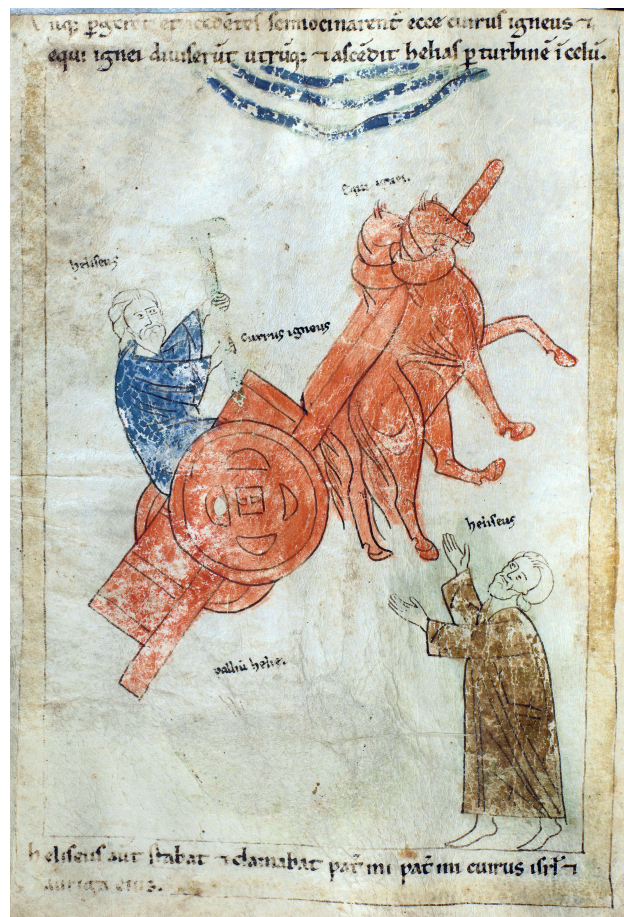 ꝑgerēt et īcedētes sermocinarent᷑ ecce currus igneus ⁊
equi ignei diuiserūt utrūqꝫ ⁊ ascēdit helias ꝑ turbinē ī celū.
Equi ignei.
heliseus
Currus igneus
heliseus
palliū helie.
heliseus aut̄ stabat ⁊ clamabat pat̄ mi pat̄ mi currus isrł ⁊
auriga eius.